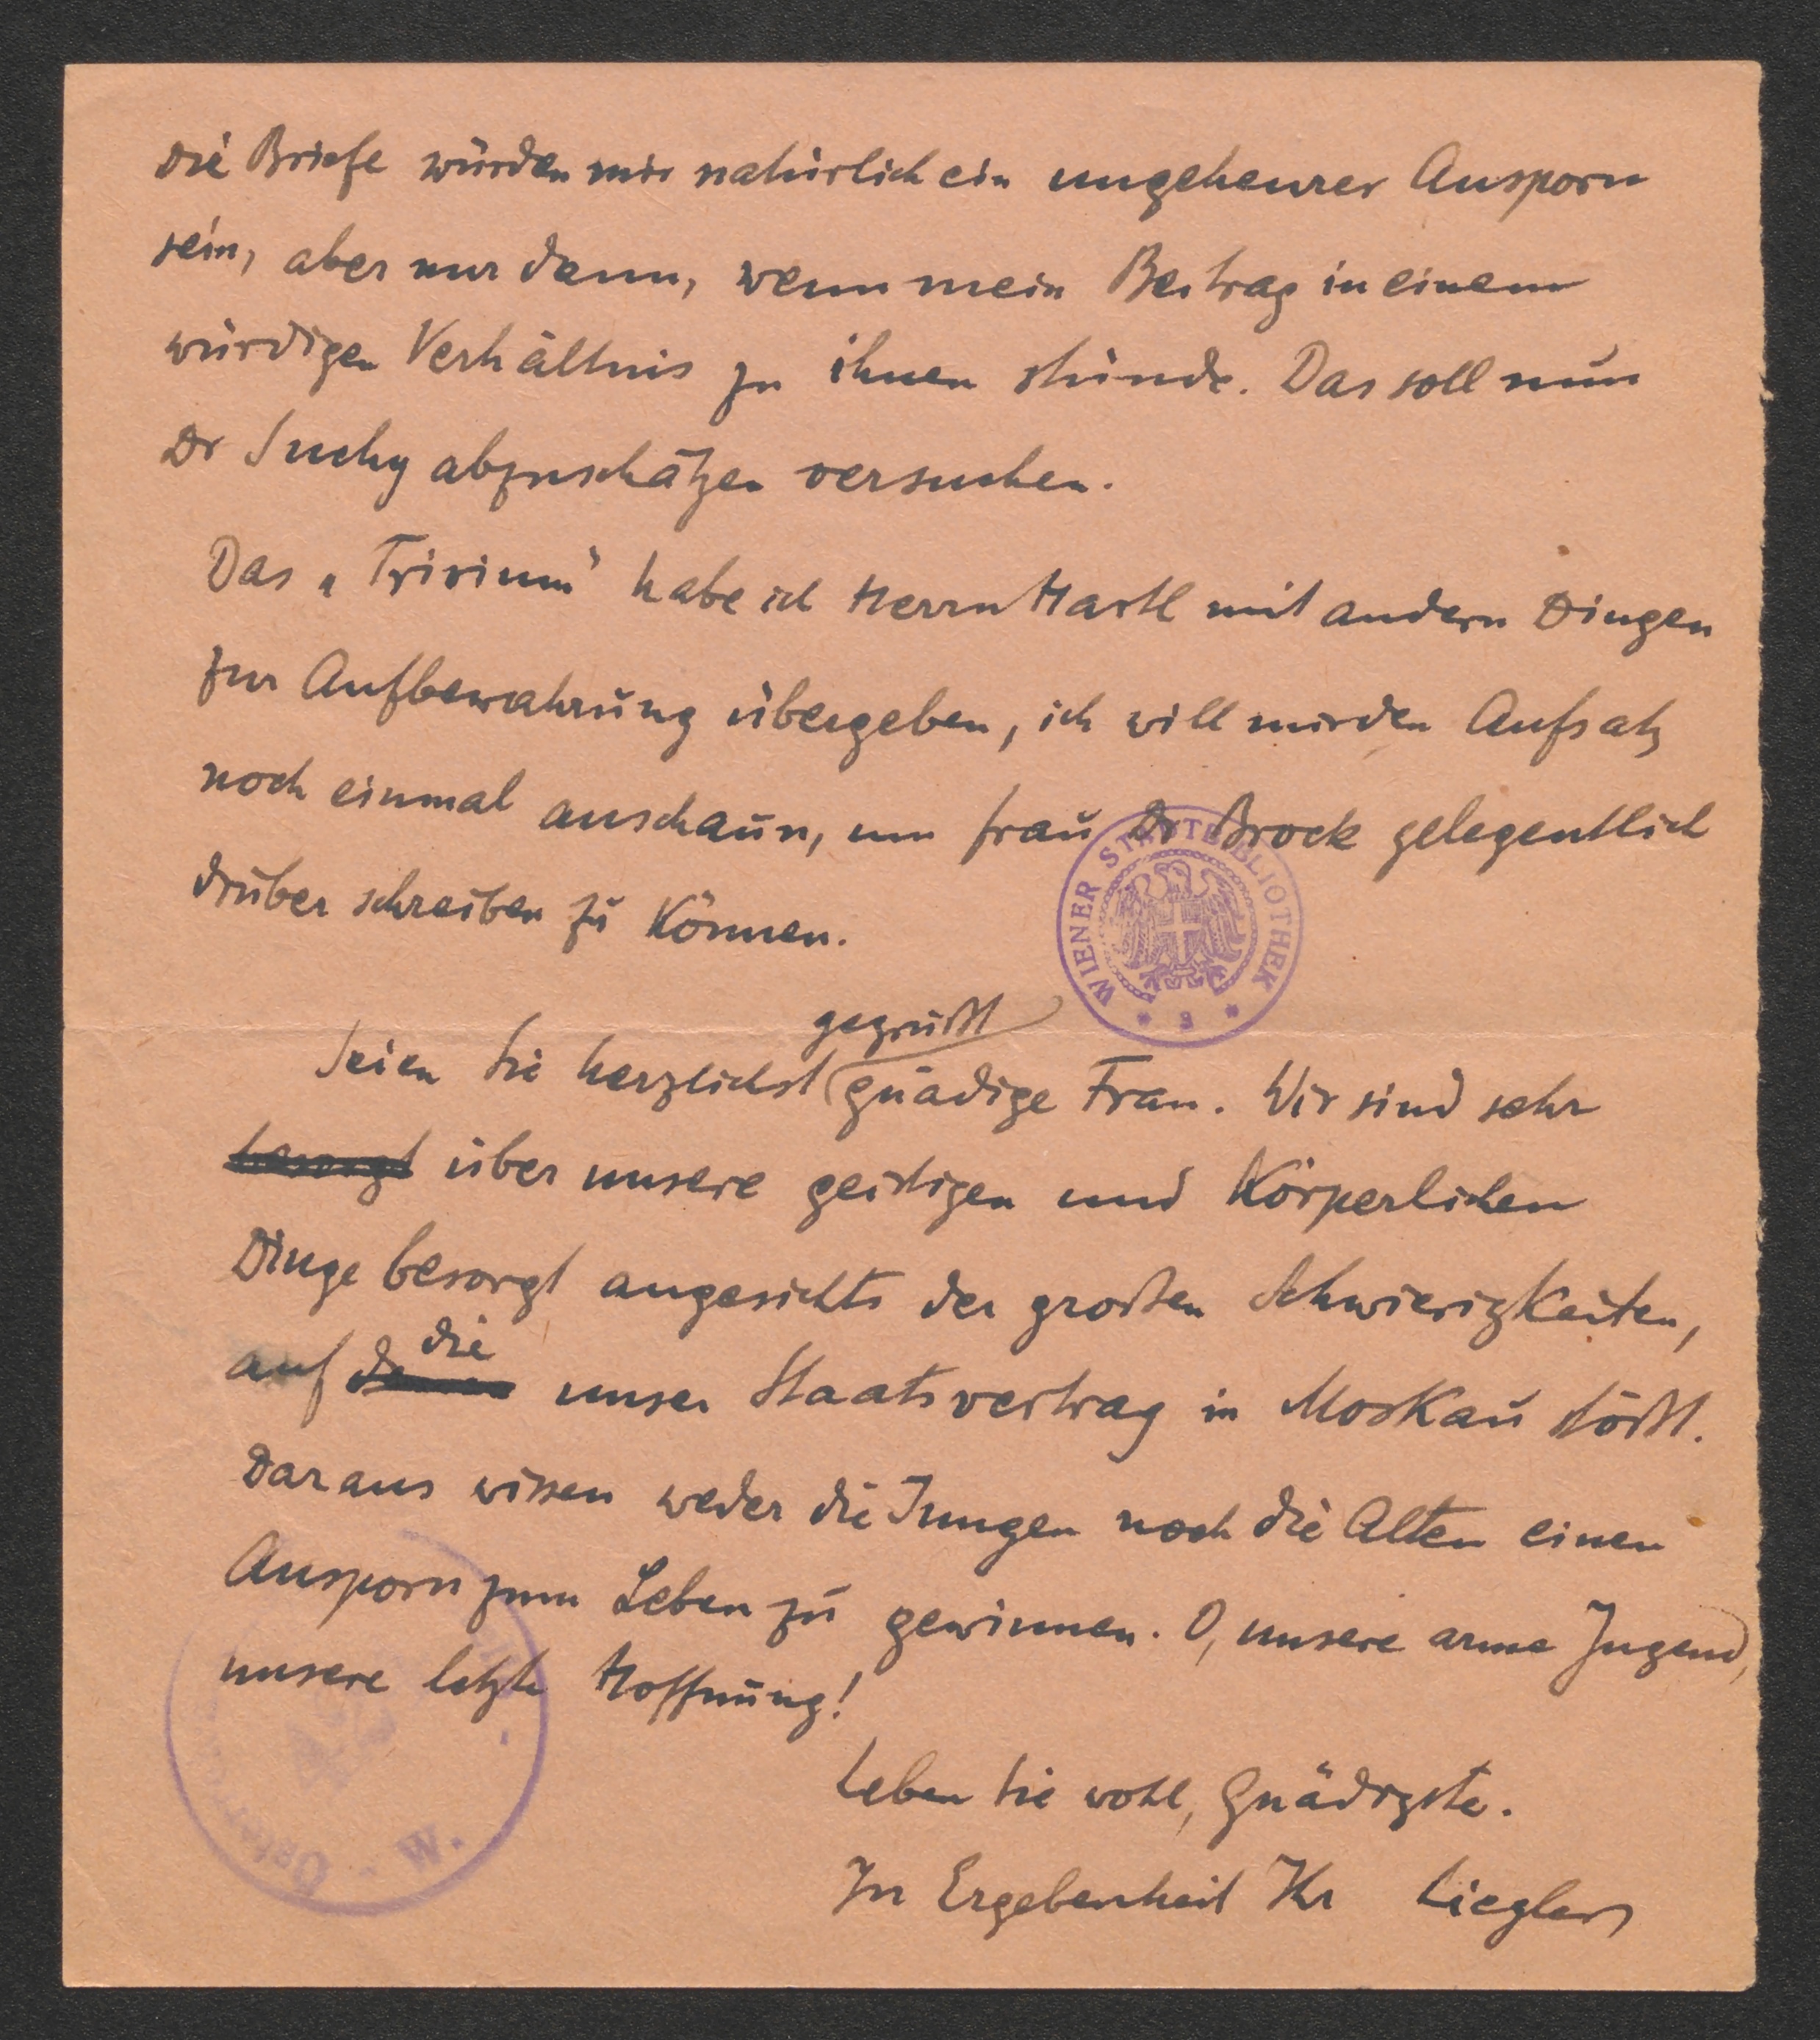 Die Briefe würden mir natürlich ein ungeheurer Ansporn
sein, aber nur dann, wenn mein Beitrag in einem
würdigen Verhältnis zu ihnen stünde. Das soll nun
Dr Suchy abzuschätzen versuchen.
Das „Trivium" habe ich Herrn Hartl mit andern Dingen
zur Aufbewahrung übergeben, ich will mir den Aufsatz
noch einmal anschaun, um Frau Dr Brock gelegentlich
drüber schreiben zu können.
WIENER STADTBIBLIOTHEK
gegrüßt
Seien Sie herzlichst gnädige Frau. Wir sind sehr
besorgt über unsere geistigen und körperlichen
Dinge besorgt angesichts der großen Schwierigkeiten,
die
auf denen unser Staatsvertrag in Moskau stößt.
Daraus wissen weder die Jungen noch die Alten einen
Ansporn zum Leben zu gewinnen. O, unsere arme Jugend,
unsere letzte Hoffnung!
Leben Sie wohl, Gnädigste.
In Ergebenheit Ihr Liegler
W.